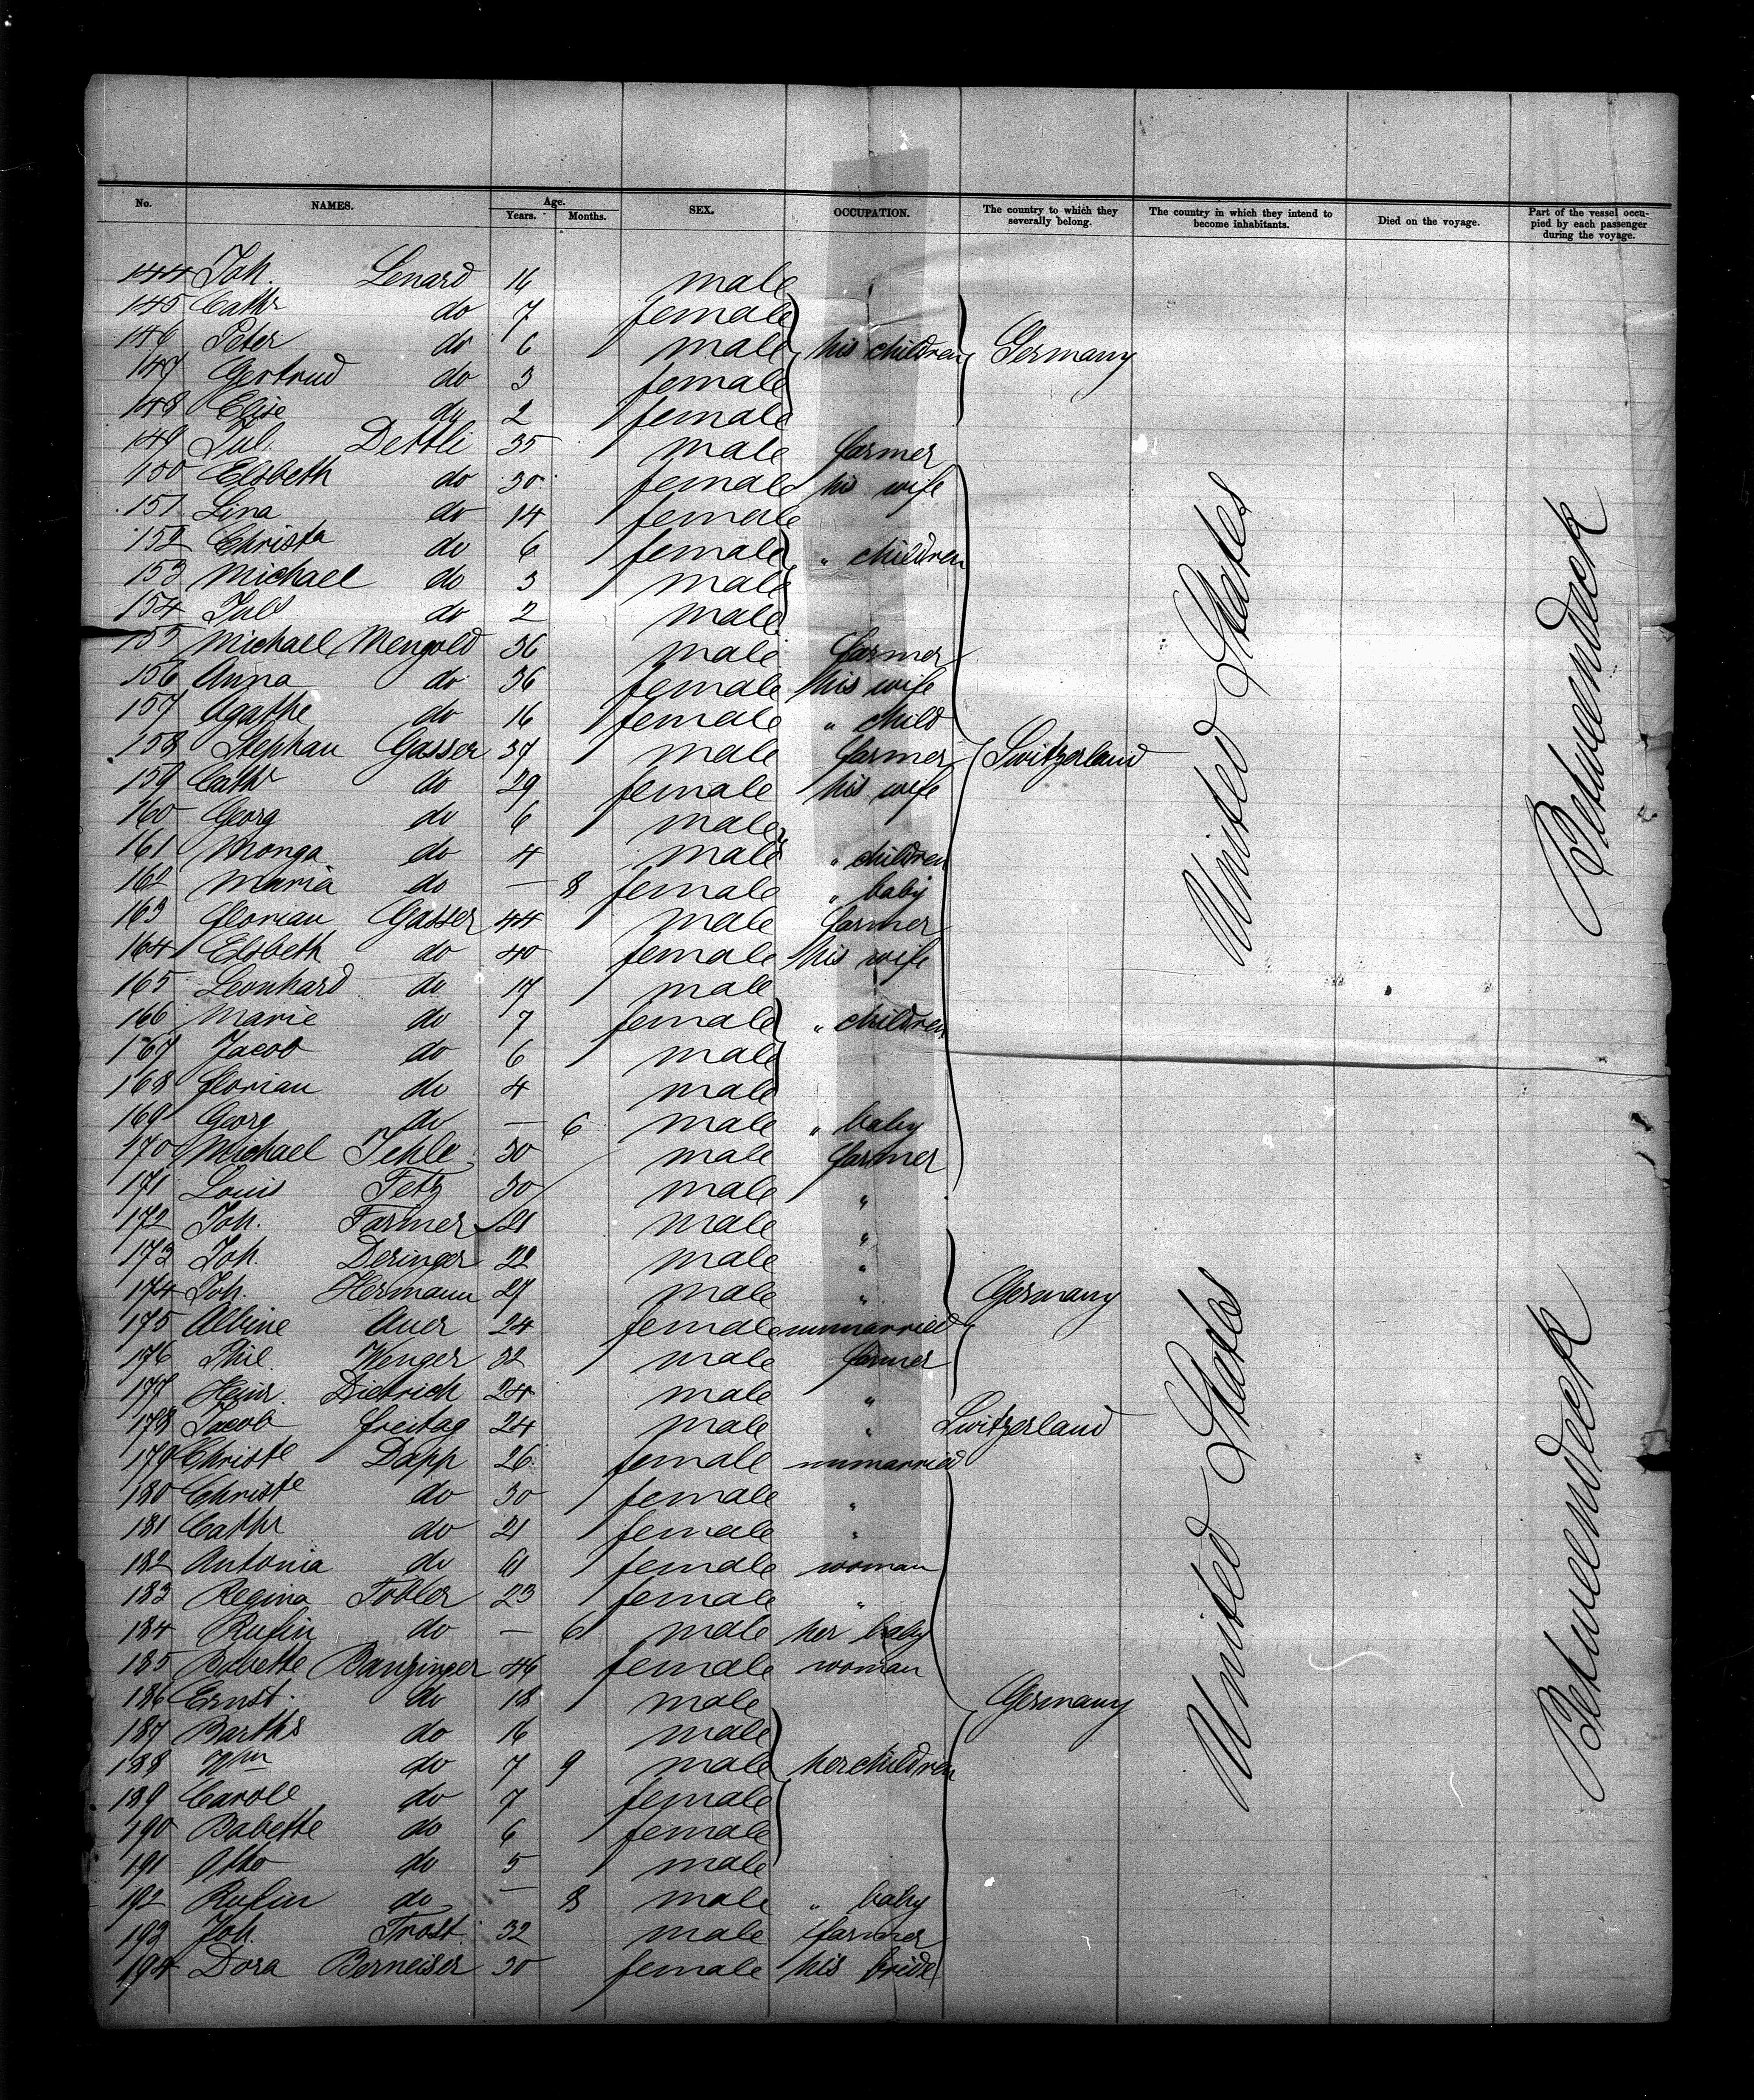 No. NAMES. Age. Years. Months. SEX. OCCUPATION. The country to which they severally belong. The country in which they intend to become inhabitants. Died on the voyage. Part of the vessel occupied by each passenger during the voyage.
144 Joh. Lenard 16 male
145 Cathr do 7 female
146 Peter do 6 male his children Germany
147 Gertrud do 3 female
148 Elise do 2 female
149 Jul. Dettli 35 male farmer
150 Elsbeth do 30 female his wife
151 Lina do 14 female
152 Christa do 6 female " children
153 Michael do 3 male
154 Juls do 2 male
155 Michael Mengold 36 male farmer
156 Anna do 36 female his wife
157 Agathe do 16 female " child
158 Stephan Gasser 37 male farmer Switzerland
159 Cathr do 29 female his wife
160 Georg do 6 male
161 Monga do 4 male " children
162 Maria do — 8 female " baby
163 Florian Gasser 44 male farmer
164 Elsbeth do 40 female his wife
165 Leonhard do 17 male
166 Marie do 7 female " children
167 Jacob do 6 male
168 Florian do 4 male
169 Georg do — 6 male " baby
170 Michael Jehle 30 male farmer
171 Louis Fetz 30 male "
172 Joh. Farmer 21 male "
173 Joh. Deringer 22 male "
174 Joh. Hermann 29 male " Germany
175 Albine Auer 24 female unmarried
176 Phil. Wenger 32 male farmer
177 Heinr. Dietrich 24 male "
178 Jacob Freitag 24 male " Switzerland
179 Christe Dapp 26 female unmarried
180 Christe do 30 female "
181 Cathr do 21 female "
182 Antonia do 61 female woman
183 Regina Tobler 23 female "
184 Rufin do — 6 male her baby
185 Babette Banzinger 46 female woman
186 Ernst do 18 male Germany
187 Barths do 16 male
188 Wm do 7 9 male her children
189 Carole do 7 female
190 Babette do 6 female
191 Otto do 5 male
192 Rufin do — 8 male " baby
193 Joh. Trost 32 male farmer
194 Dora Berneiser 30 female his bride
United States
Betweendeck
United States
Betweendeck